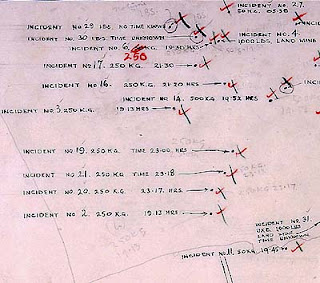 INCIDENT NO. 27.
50 KG. 05:30
INCIDENT NO 29 I.B.S. NO TIME KNOWN
INCIDENT NO. 30 I.B.S. TIME UNKNOWN
INCIDENT NO. 4.
1000 LBS. LAND MINE
INCIDENT NO 6. KG. 19:30 HRS
250
INCIDENT NO 17. 250 KG. 21:30
INCIDENT NO 16. 250 KG. 21:20 HRS
INCIDENT NO 14. 500 KG 19:52 HRS
INCIDENT NO 3. 250 KG. 19:13 HRS
INCIDENT NO 19. 250 KG TIME 23:00 HRS
INCIDENT NO. 21. 250 KG TIME 23:18
INCIDENT NO 20. 250 KG. 23:17. HRS
INCIDENT NO 2. 250 KG. 19:13 HRS
INCIDENT NO. 31.
1000 LBS
LAND MINE
TIME UNKNOWN
INCIDENT NO 11. 50 KG. 19:45